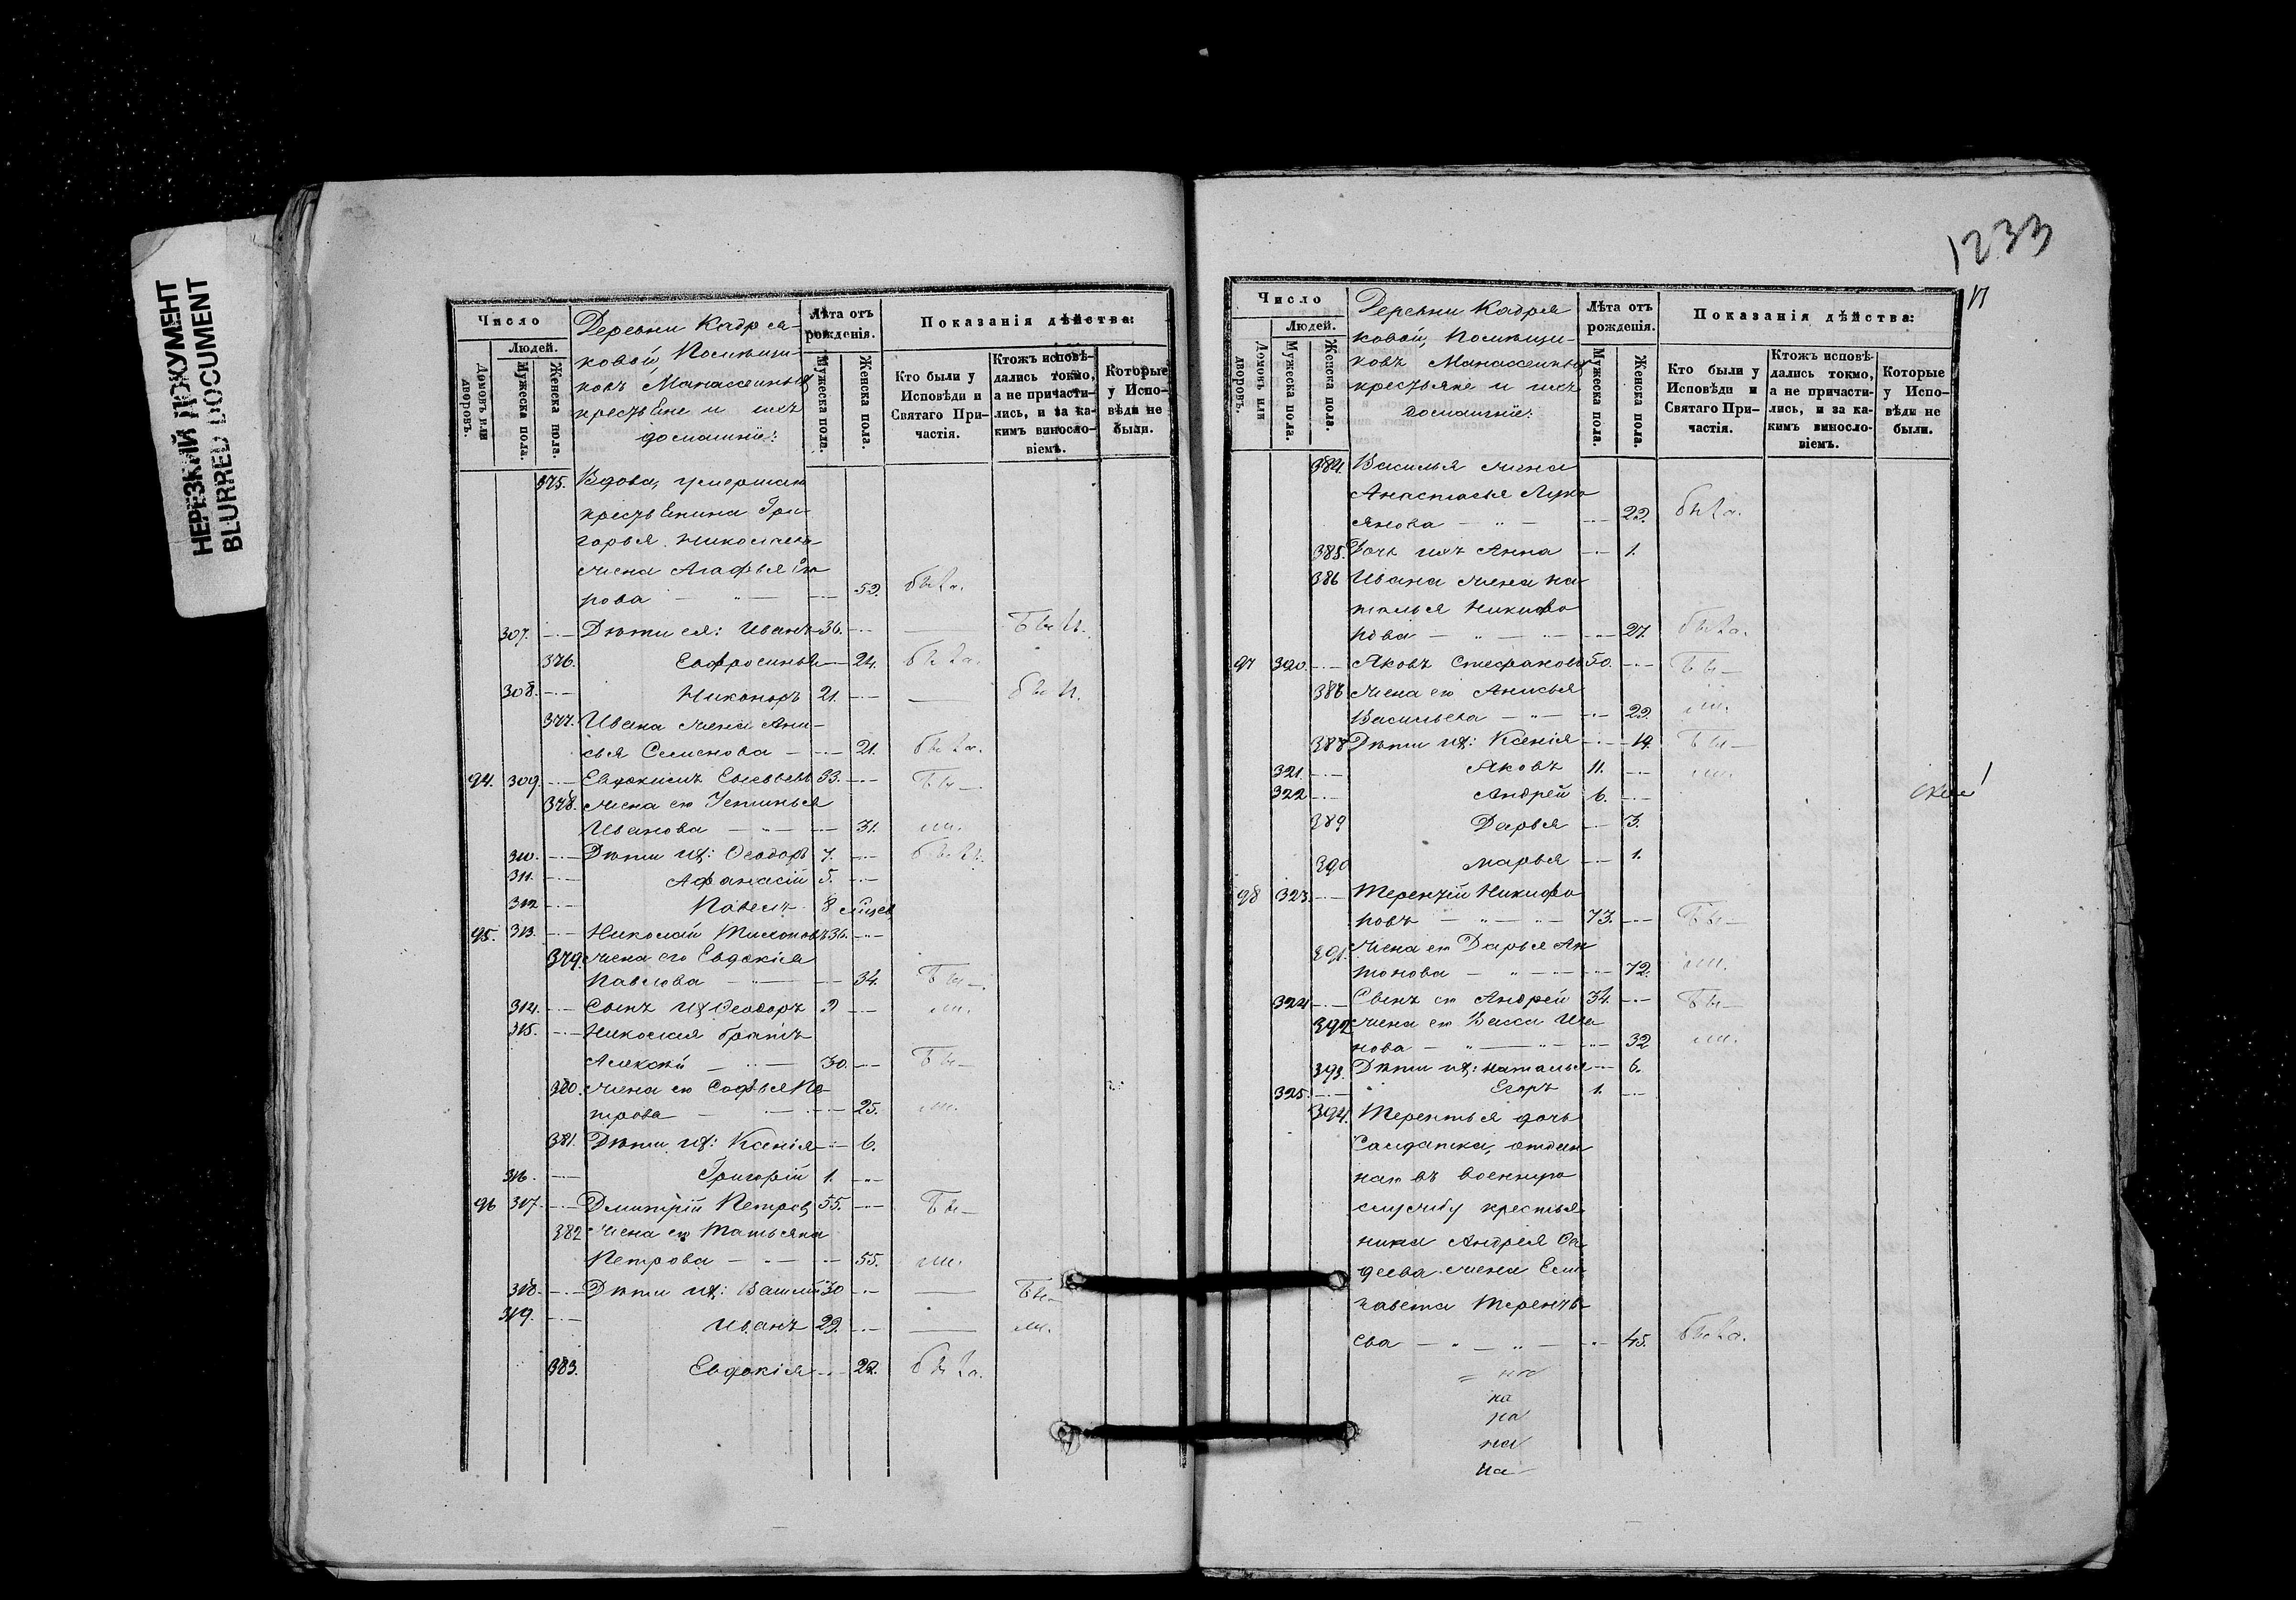 НЕРЕЗКИЙ ДОКУМЕНТ
BLURRED DOCUMENT
Число
Людей.
Домовъ или дворовъ.
Мужеска пола.
Женска пола.
Деревни Кадрея-
ковой, Помѣщи-
ковъ Манассеиныхъ
крестьяне и ихъ
домашніе:
Лѣта отъ рожденія.
Мужеска пола.
Женска пола.
Показанія дѣйства:
Кто были у Исповѣди и Святаго При-частія.
Ктожъ исповѣ-дались токмо, а не причасти-лись, и за ка-кимъ винословіемъ.
Которые у Испо-вѣди не были.
375. Вдова, умершаго
крестьянина Гри-
горья Николаева
жена Агафья
рова 52. была.
307. Дѣти ея: Иванъ 36. былъ.
376. Евфросинья 24. была.
308. Никоноръ 21. былъ.
377. Ивана жена Ани-
сья Семенова 21. была.
94. 309. Евдокимъ 33. бы-
378. жена его Устинья
Иванова 31. ли.
310. Дѣти ихъ: Ѳеодоръ 7. былъ.
311. Афанасій 5.
312 Павелъ 8 мѣсяц.
95. 313. Николай 36.
379. жена его Евдокія
Павлова 34. Бы-
314. Сынъ ихъ Ѳеодоръ 9 ли.
315. Николая братъ
Алексѣй 30. Бы-
380. жена его Софья Пе-
трова 25. ли.
381. Дѣти ихъ: Ксенія 6.
316. Григорій 1.
96 317. Дмитрій Петровъ 55. Бы-
382 жена его Татьяна
Петрова 55. ли.
318. Дѣти ихъ: Василій 30 Бы-
319. Иванъ 29. ли.
383. Евдокія 22. была.
1233
Число
Людей.
Домовъ или дворовъ.
Мужеска пола.
Женска пола.
Деревни Кадрея
ковой, Помѣщи-
ковъ Манассеиныхъ
крестьяне и ихъ
домашніе:
Лѣта отъ рожденія.
Мужеска пола.
Женска пола.
Показанія дѣйства:
Кто были у Исповѣди и Святаго При-частія.
Ктожъ исповѣ-дались токмо, а не причасти-лись, и за ка-кимъ винословіемъ.
Которые у Испо-вѣди не были.
384. Василья жена
Анастасья Луко
янова 22. была.
385. Дочь ихъ Анна 1.
386 Ивана жена На
талья Никифо
рова 27. была.
97 320. Яковъ Стефановъ 50. Бы-
жена его Анисья
Васильева 22. ли.
388 Дѣти ихъ: Ксенія 14. Бы-
321. Яковъ 11. ли.
322 Андрей 6.
389 Дарья 3.
390 Марья 1.
98 323. Терентій Никифо
ровъ 73. Бы-
391. жена его Дарья Ан
тонова 72. ли.
324 Сынъ его Андрей 34. Бы-
392 жена его Васса Ива
нова 32 ли.
393. Дѣти ихъ: Наталья 6.
325. Егоръ 1.
394. Терентья дочь
Салдатка, отдан
наго въ военную
службу крестья
нина Андрея
деева жена Ели
завета Теренть
ева 45. была.
на
на
на
на